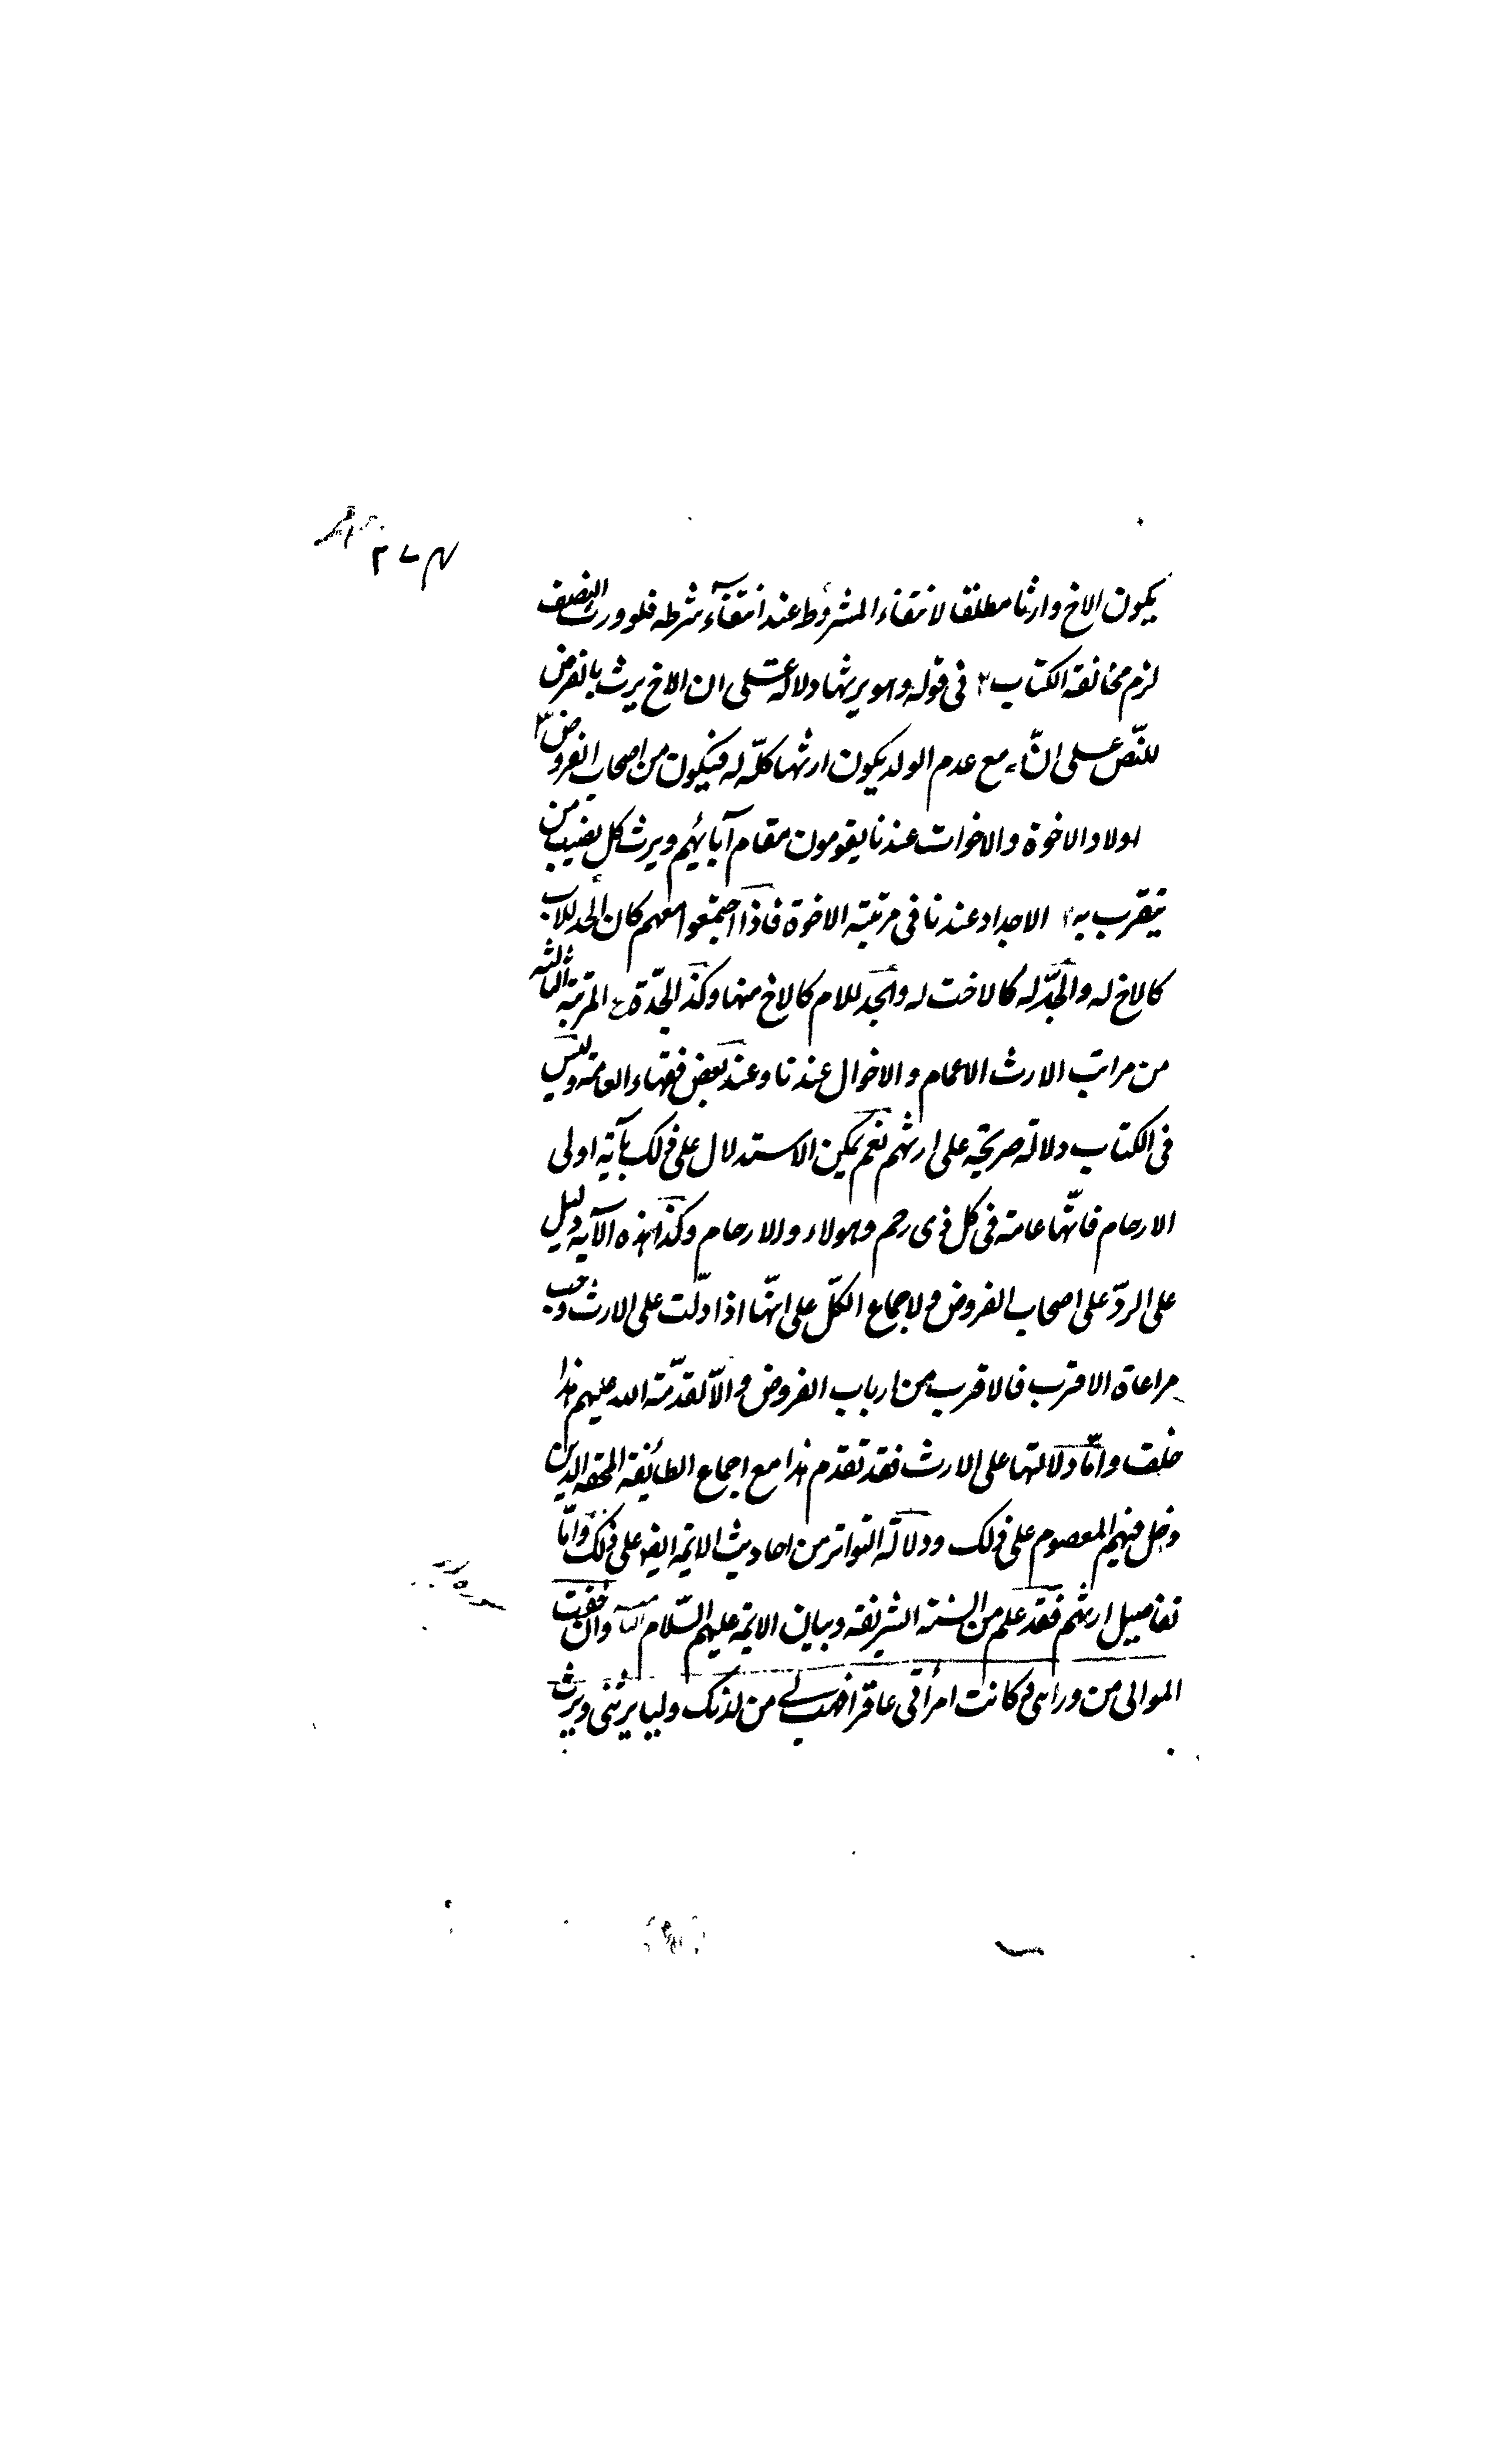 يكون الاخ وارثا مطلقا لانتفاء المشروط عند انتفآء شرطه فلو ورث النصف
لزم مخالفة الكتاب ٢ فى قوله وهو يرثها دلالة على ان الاخ يرث بالفرض
للنّص على انّه مع عدم الولد يكون ارثها كلّه له فيكون من اصحاب الفروض ٣
اولاد الاخوة والاخوات عندنا يقومون مقام آبائهم ويرث كل نصيب من
يتقرب به الاجداد عندنا فى مرتبة الاخوة فاذا اجتمعوا معهم كان الجد للاب
كالاخ له والجدّ له كالاخت له والجد للام كالاخ منها وكذ الجدّة المرتبة الثالثة
من مراتب الارث الاعمام والاخوال عندنا وعند بعض فقهاء العامة وليس
فى الكتاب دلالة صريحة على ارثهم نعم يمكن الاستدلال على ذلك بآية اولى
الارحام فانّها عامة فى كل ذى رحم وهولاء اولا ارحام وكذا هذه الآية دليل
على الردّ على اصحاب الفروض ولاجماع الكلّ على انّها اذا دلّت على الارث وجب
مراعاة الاقرب فالاقرب من ارباب الفروض والّا لقدّمة الله عليهم هذا
خلف وامّا دلالتها على الارث فقد تقدم هذا مع اجماع الطائفة المحقه الذين
دخل فيهم المعصوم على ذلك ودلالة التواتر من احاديث الائمة ايضا على ذلك وامّا
تفاصيل ارثهم فقد علم من السنة الشريفة وبيان الائمة عليهم السّلام وانى خفت
الموالى من ورائى وكانت امرأتى عاقرا فهب لى من لدنك وليا يرثنى ويرث